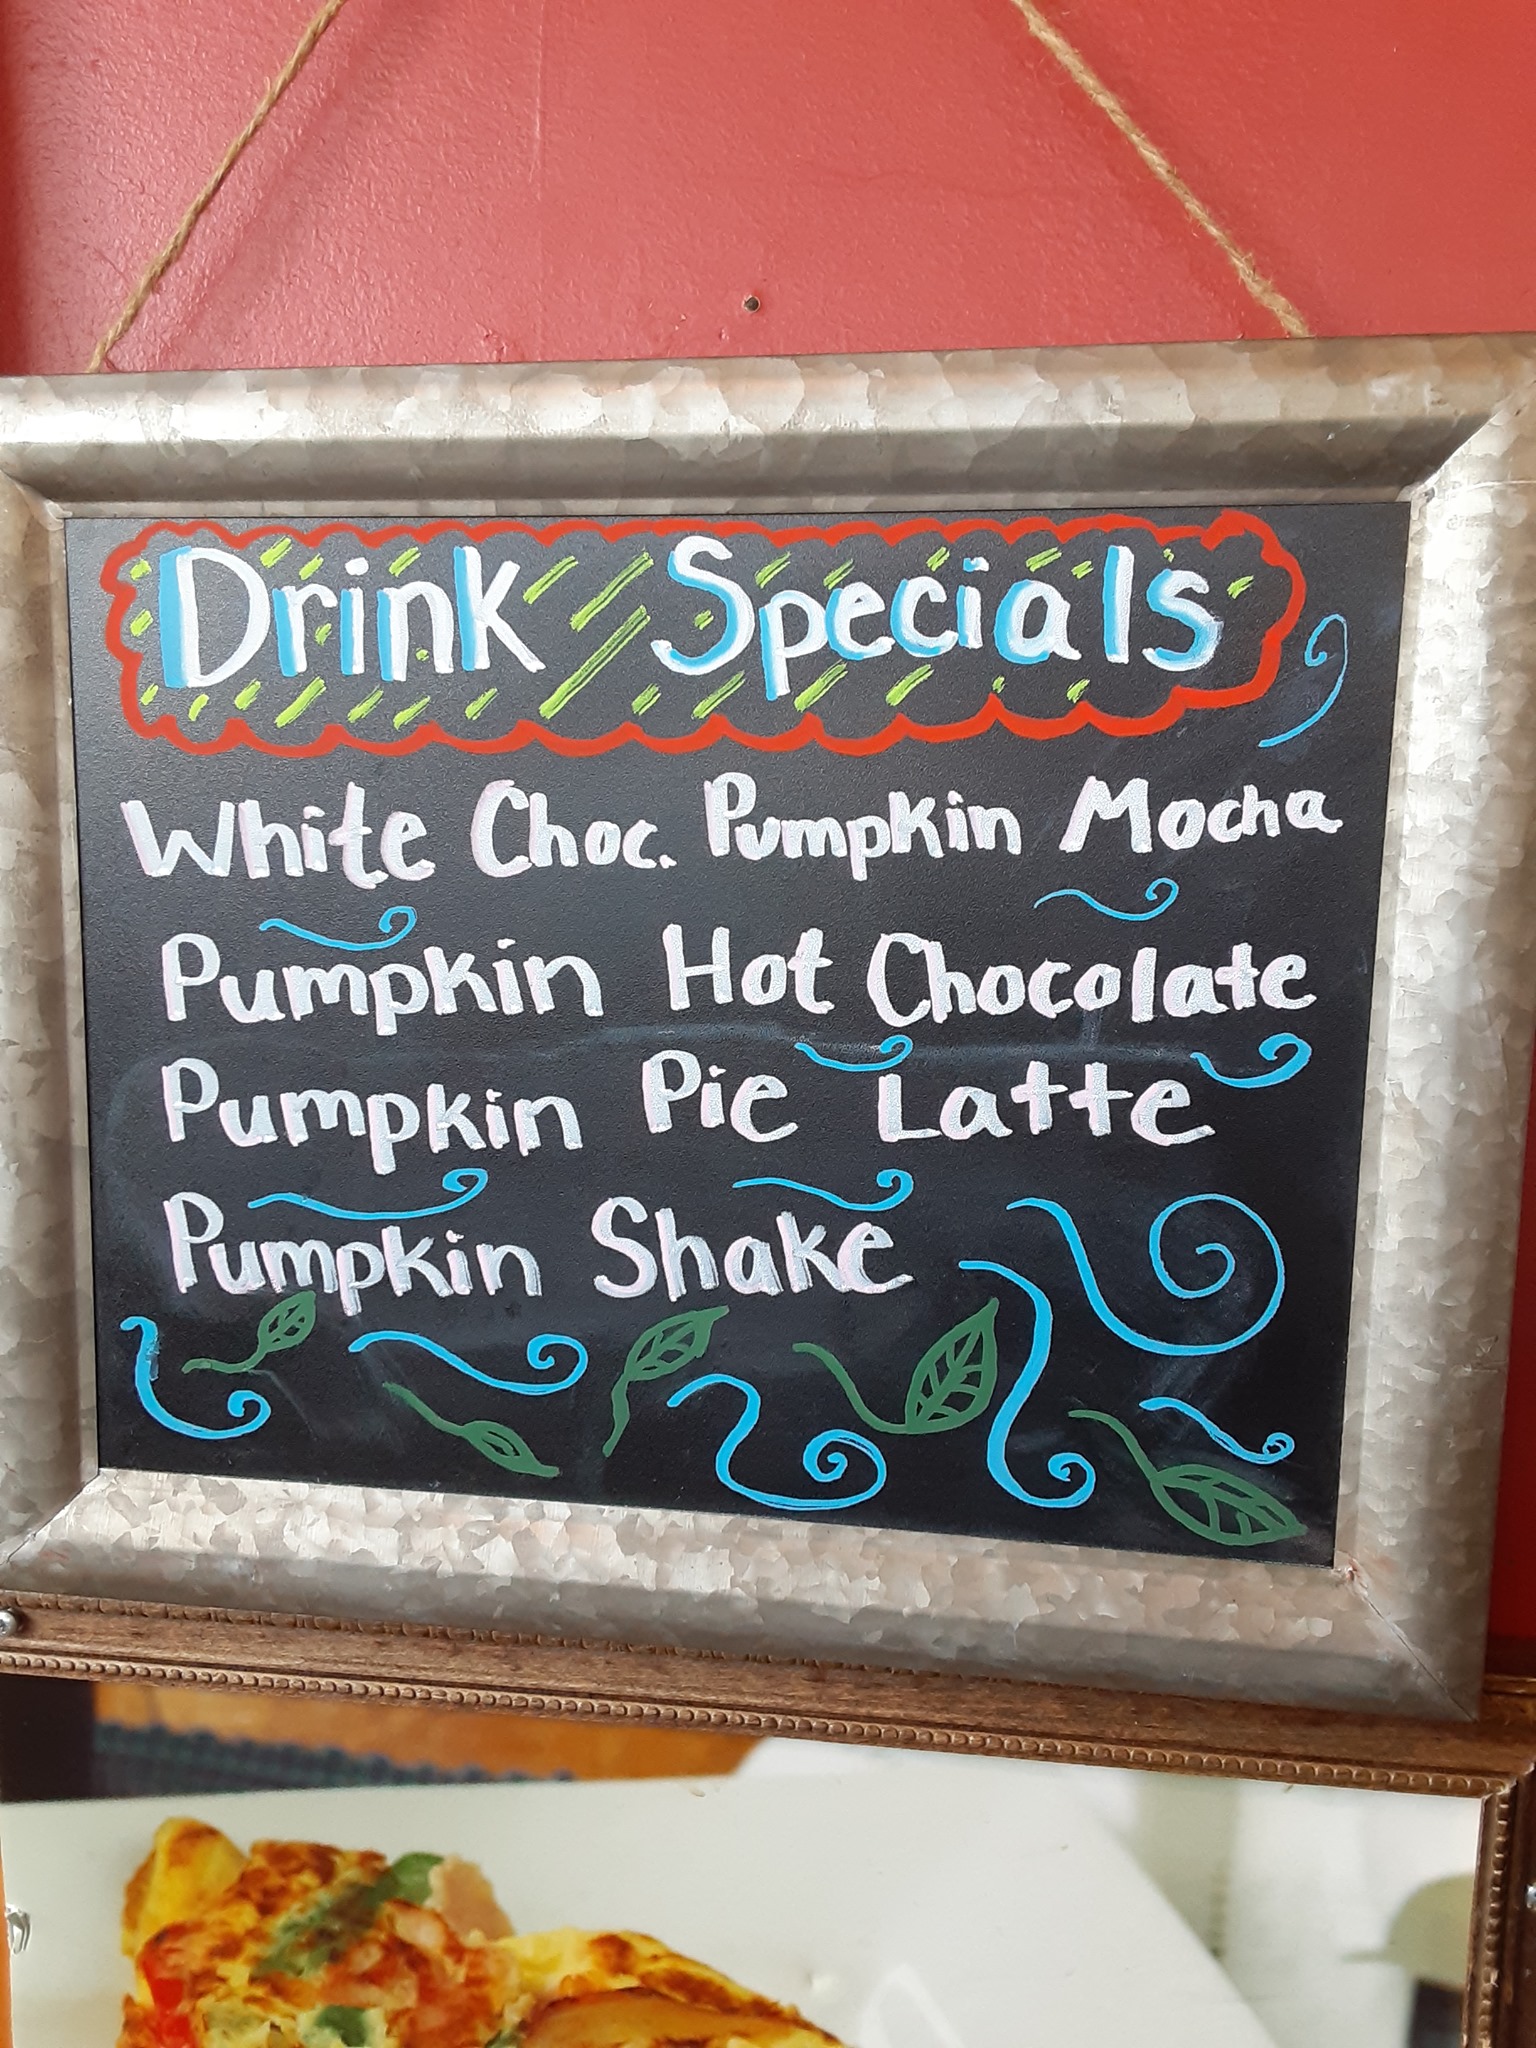 Drink Specials
White Choc. Pumpkin Mocha
Pumpkin Hot Chocolate
Pumpkin Pie Latte
Pumpkin Shake